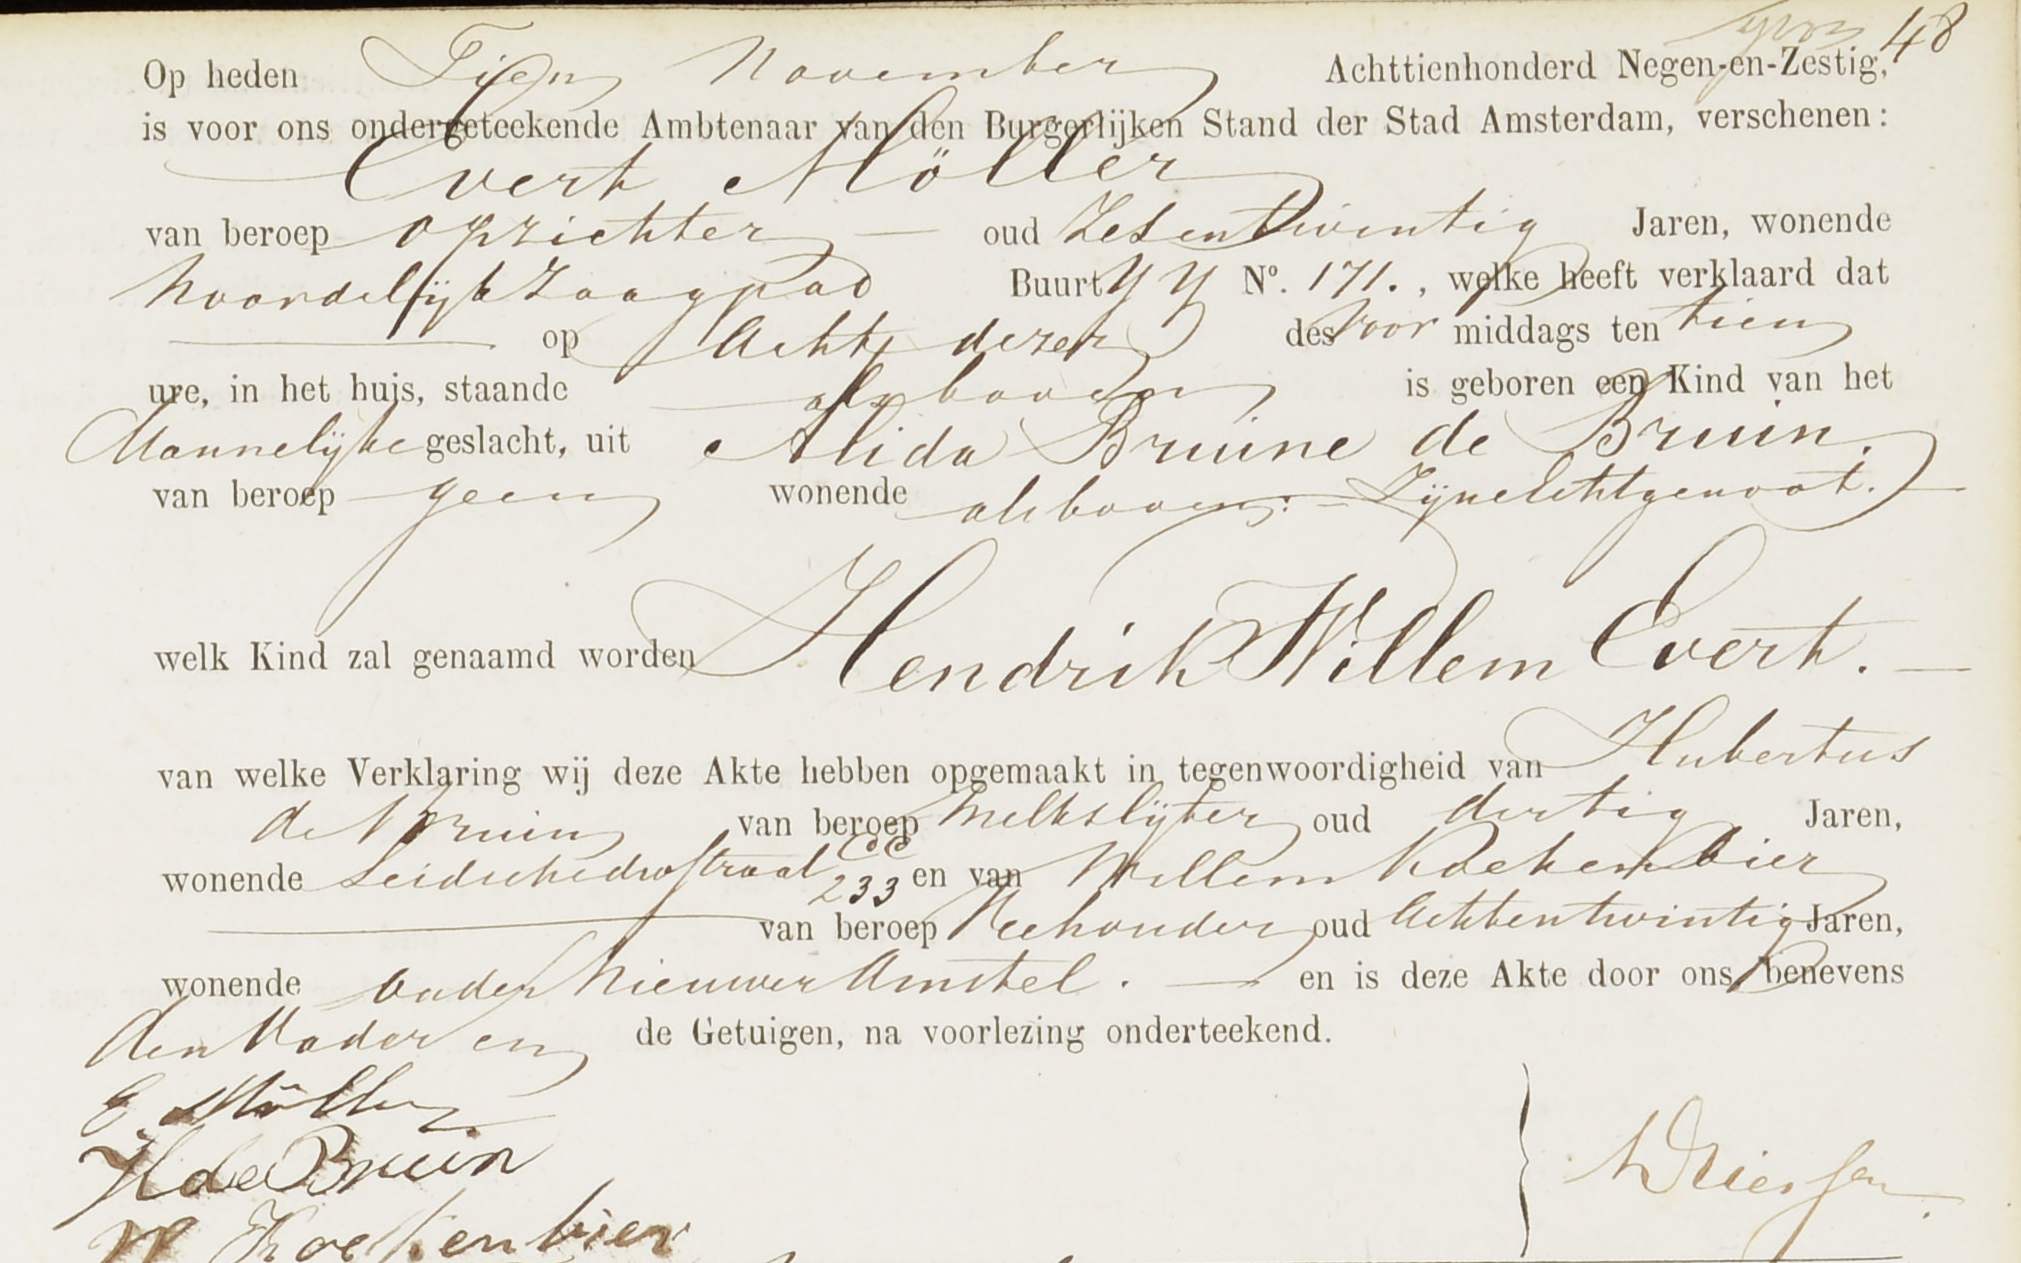 48
Op heden Tien November Achttienhonderd Negen-en-Zestig,
is voor ons ondergeteekende Ambtenaar van den Burgerlijken Stand der Stad Amsterdam, verschenen:
Evert Möller
van beroep oprichter oud Zesentwintig Jaren, wonende
Noordelijk Zaagpad Buurt YY Nº. 171., welke heeft verklaard dat
op Acht dezer des Voor middags ten tien
ure, in het huis, staande alsboven is geboren een Kind van het
Mannelijke geslacht, uit Alida Bruine de Bruin.
van beroep geen wonende alsboven: Zijne Echtgenoot.
welk Kind zal genaamd worden Hendrik Willem Evert.
van welke Verklaring wij deze Akte hebben opgemaakt in tegenwoordigheid van Hubertus
de Bruin van beroep Melkslijter oud dertig Jaren,
wonende Leidschedwstraat CC 233 en van Willem Koekenbier
van beroep Veehouder oud Achtentwintig Jaren,
wonende onder Nieuwer Amstel. en is deze Akte door ons, benevens
den Vader en de Getuigen, na voorlezing onderteekend.
E Möller
H de Bruin
W Koekenbier